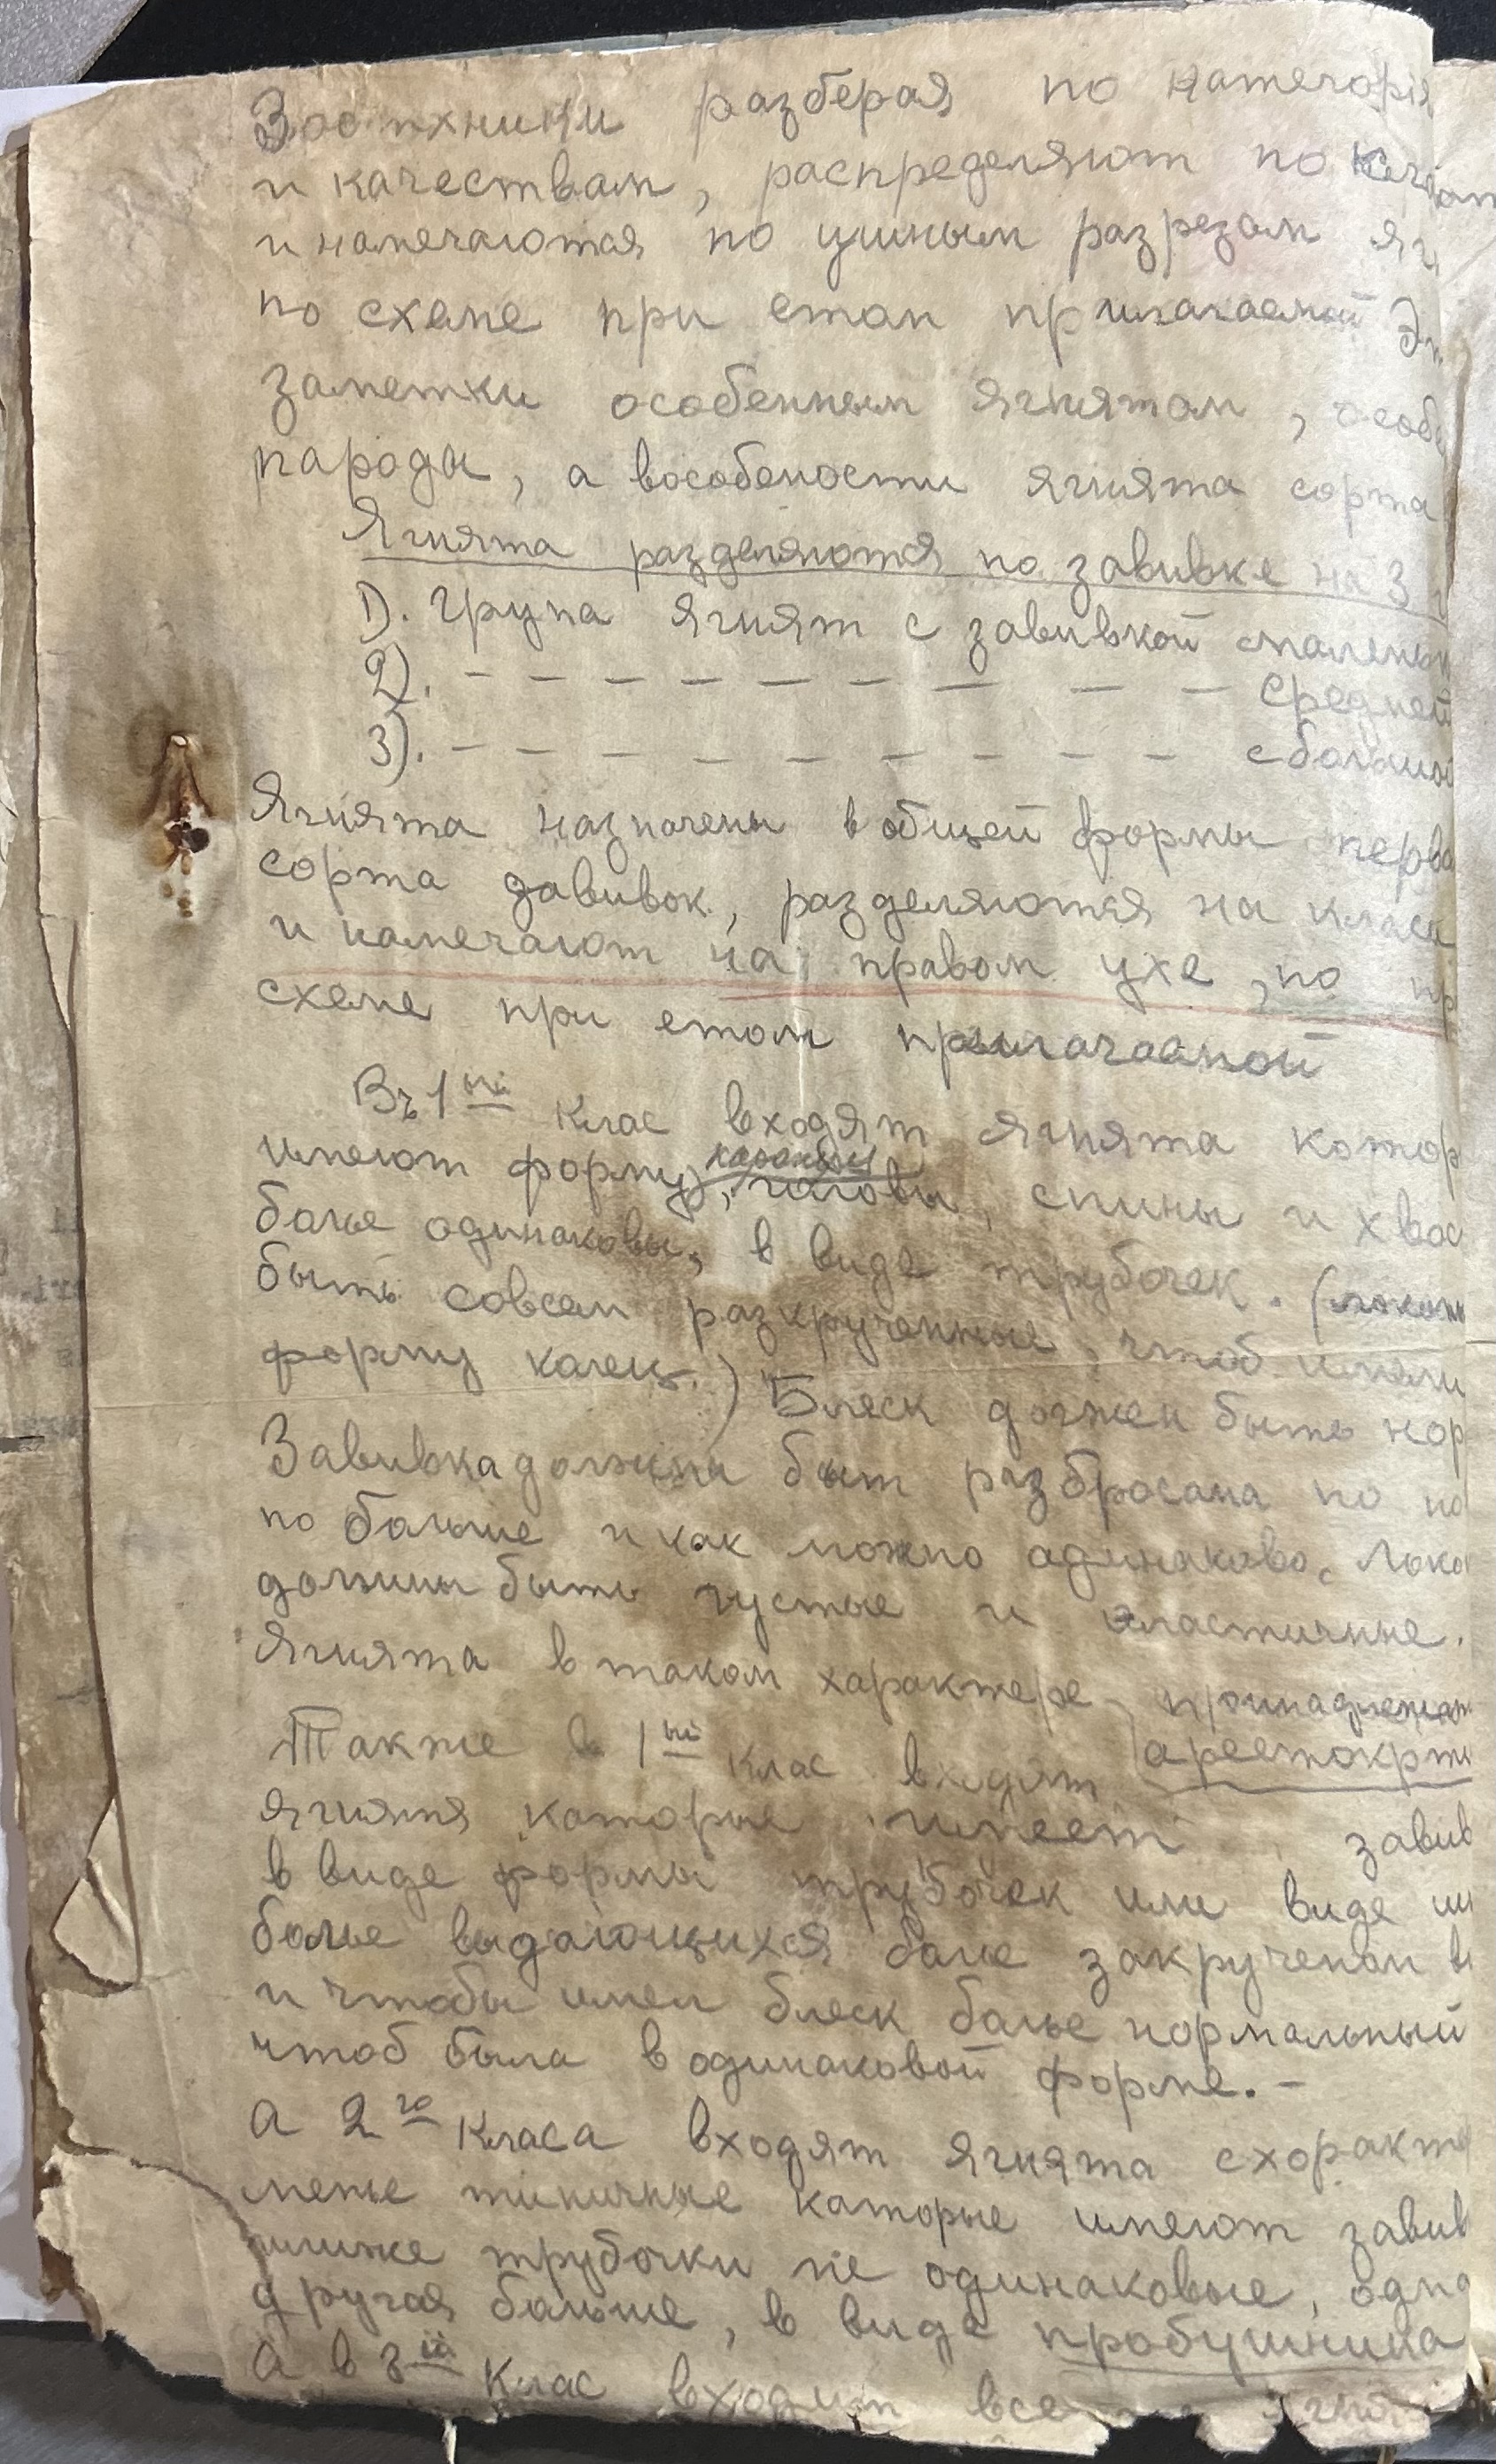 Зоотхники разберая по категорія
и качествам, распределяют по
и намечаются по ушным разрезам яг
по схеме при етом прилагаемой Эт
заметки особенным ягнятам, особ
народы, а вособености ягнята сорта
Ягнята разделяются по завивке на 3
1). група ягнят с завивкой маленьк
2). - - - - - - - - - - - средней
3). - - - - - - - - - - - с большой
Ягнята назначены в общей формы перво
сорта завивок, разделяются на класы
и намечают на правом ухе, по пр
схеме при етом прилагаемой
Въ 1ый клас входят ягнята котор
имеют форму, головы, спины и хвос
болье одинаковы, в виде трубочек. (локон
быть совсем разкрученные, чтоб имели
форму колец.) Блеск должен быть нор
Завивка должна быт разбросана по по
по больше и как можно одинаково. Локо
должны быть густые и эластичные.
Ягнята в таком характере принадлежат
Также в 1ый клас входят аристокрти
ягнята каторые имеет завив
в виде формы трубочек или виде ш
болье выдающихся боле закрученом в
и чтобы имел блеск болье нормальный
чтоб была в одинаковой форме. -
А 2го класа входят ягнята схоракте
менье типичные каторые имеют завив
трубочки не одинаковые, одна
другая больше, в виде пробушника
А в 3ій клас входит все